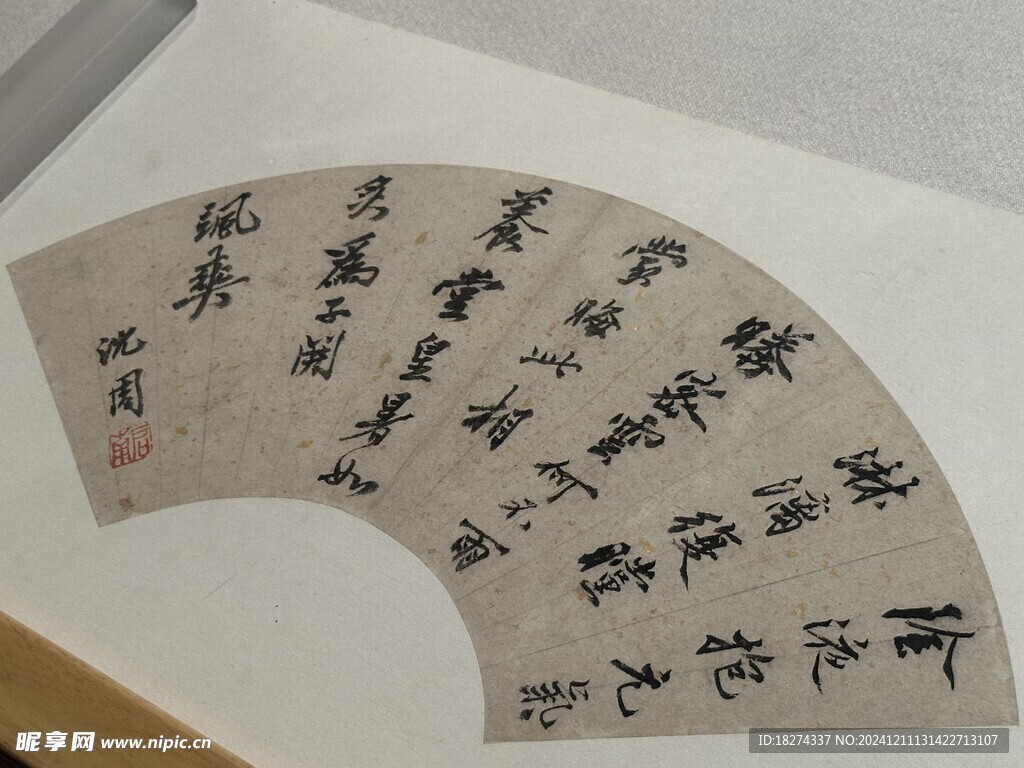 液抱元氣
淋漓復曈
雲何不雨
嘗晦相
養堂皇暑如
炙為子開
颯爽
沈周
昵享网 www.nipic.cn
ID:18274337 NO:20241211131422713107